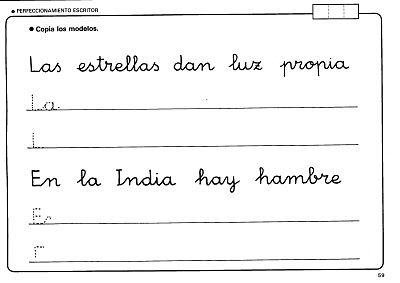 ● PERFECCIONAMIENTO ESCRITOR
● Copia los modelos.
Las estrellas dan luz propia
La
L
En la India hay hambre
En
E
59